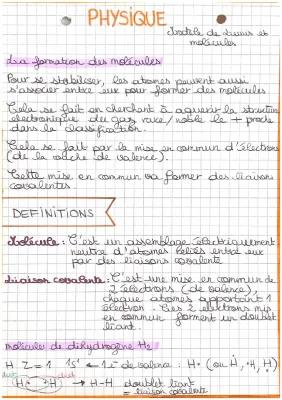 PHYSIQUE
Modèle de Lewis et
molécules
La formation des molécules
Pour se stabiliser, les atomes peuvent aussi
s'associer entre eux pour former des molécules
Cela se fait en cherchant à aquerir la structure
electronique du gaz rare/noble le + proche
dans la classification.
Cela se fait par la mise en commun d'électrons
(de la couche de valence).
Cette mise en commun va former des liaisons
covalentes.
DEFINITIONS
Molécule : C'est un assemblage électriquement
neutre d'atomes reliés entre eux
par des liaisons covalente
Liaison covalente : C'est une mise en commun de
2 électrons (de valence),
chaque atomes apportant 1
électron. Ces 2 electrons mis
en commun forment un doublet
liant.
molécule de dihydrogène H₂
H Z=1 1s¹ ← 1 e⁻ de valence : H• (ou Ḣ, •H, H)
H• •H → H-H doublet liant
= liaison covalente